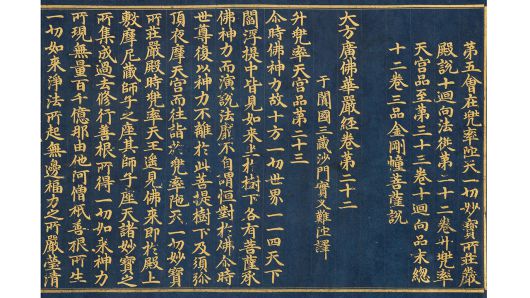 第五會在兜率陁天一切妙寶所莊嚴
殿說十迴向法従第二十二卷升兜率
天宮品至第三十三卷十迴向品末總
十二卷三品金剛幢菩薩說
大方廣佛華嚴経卷第二十二
于闐國三藏沙門實叉難陁譯
升兜率天宮品第二十三
尒時佛神力故十方一切世界一一四天下
閻浮提中皆見如來坐於樹下各有菩薩承
佛神力而演說法靡不自謂恒對於佛尒時
世尊復以神力不離於此菩提樹下及須弥
頂夜摩天宮而往詣於兜率陁天一切妙寶
所莊嚴殿時兜率天王遙見佛來即於殿上
敷摩尼藏師子之座其師子座天諸妙寶之
所集成過去修行善根所得一切如來神力
所現無量百千億那由他阿僧祇善根所生
一切如來淨法所起無邊福力之所嚴瑩清